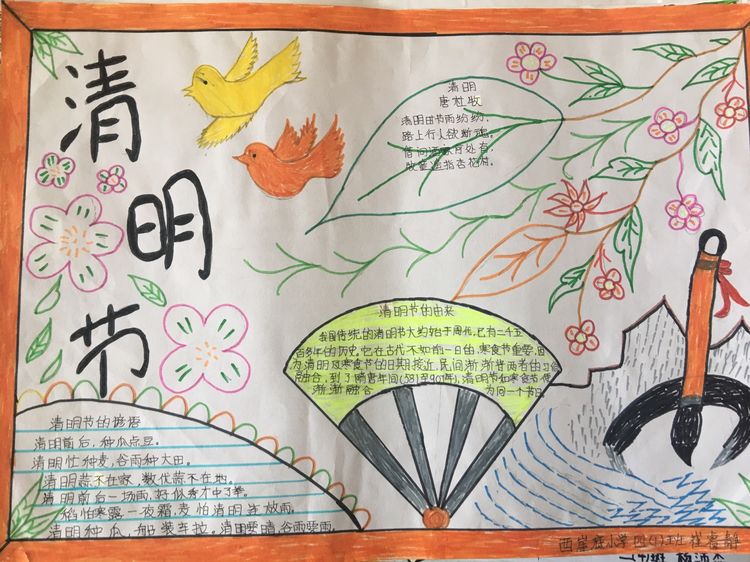 清明节
清明
唐 杜牧
清明时节雨纷纷，
路上行人欲断魂。
借问酒家何处有，
牧童遥指杏花村。
清明节的由来
我国传统的清明节大约始于周代，已有二千五
百多年的历史。它在古代不如前一日的寒食节重要，因
为清明及寒食节的日期接近，民间渐渐将两者的习俗
融合，到了隋唐年间(581至907年)，清明节和寒食节便
渐渐融合 为同一个节日
清明节的谚语
清明前后，种瓜点豆。
清明忙种麦，谷雨种大田。
清明前后一场雨，好似秀才中了举。
稻怕寒露一夜霜，麦怕清明连放雨。
清明种瓜，船装车拉。清明要晴，谷雨要雨。
小学